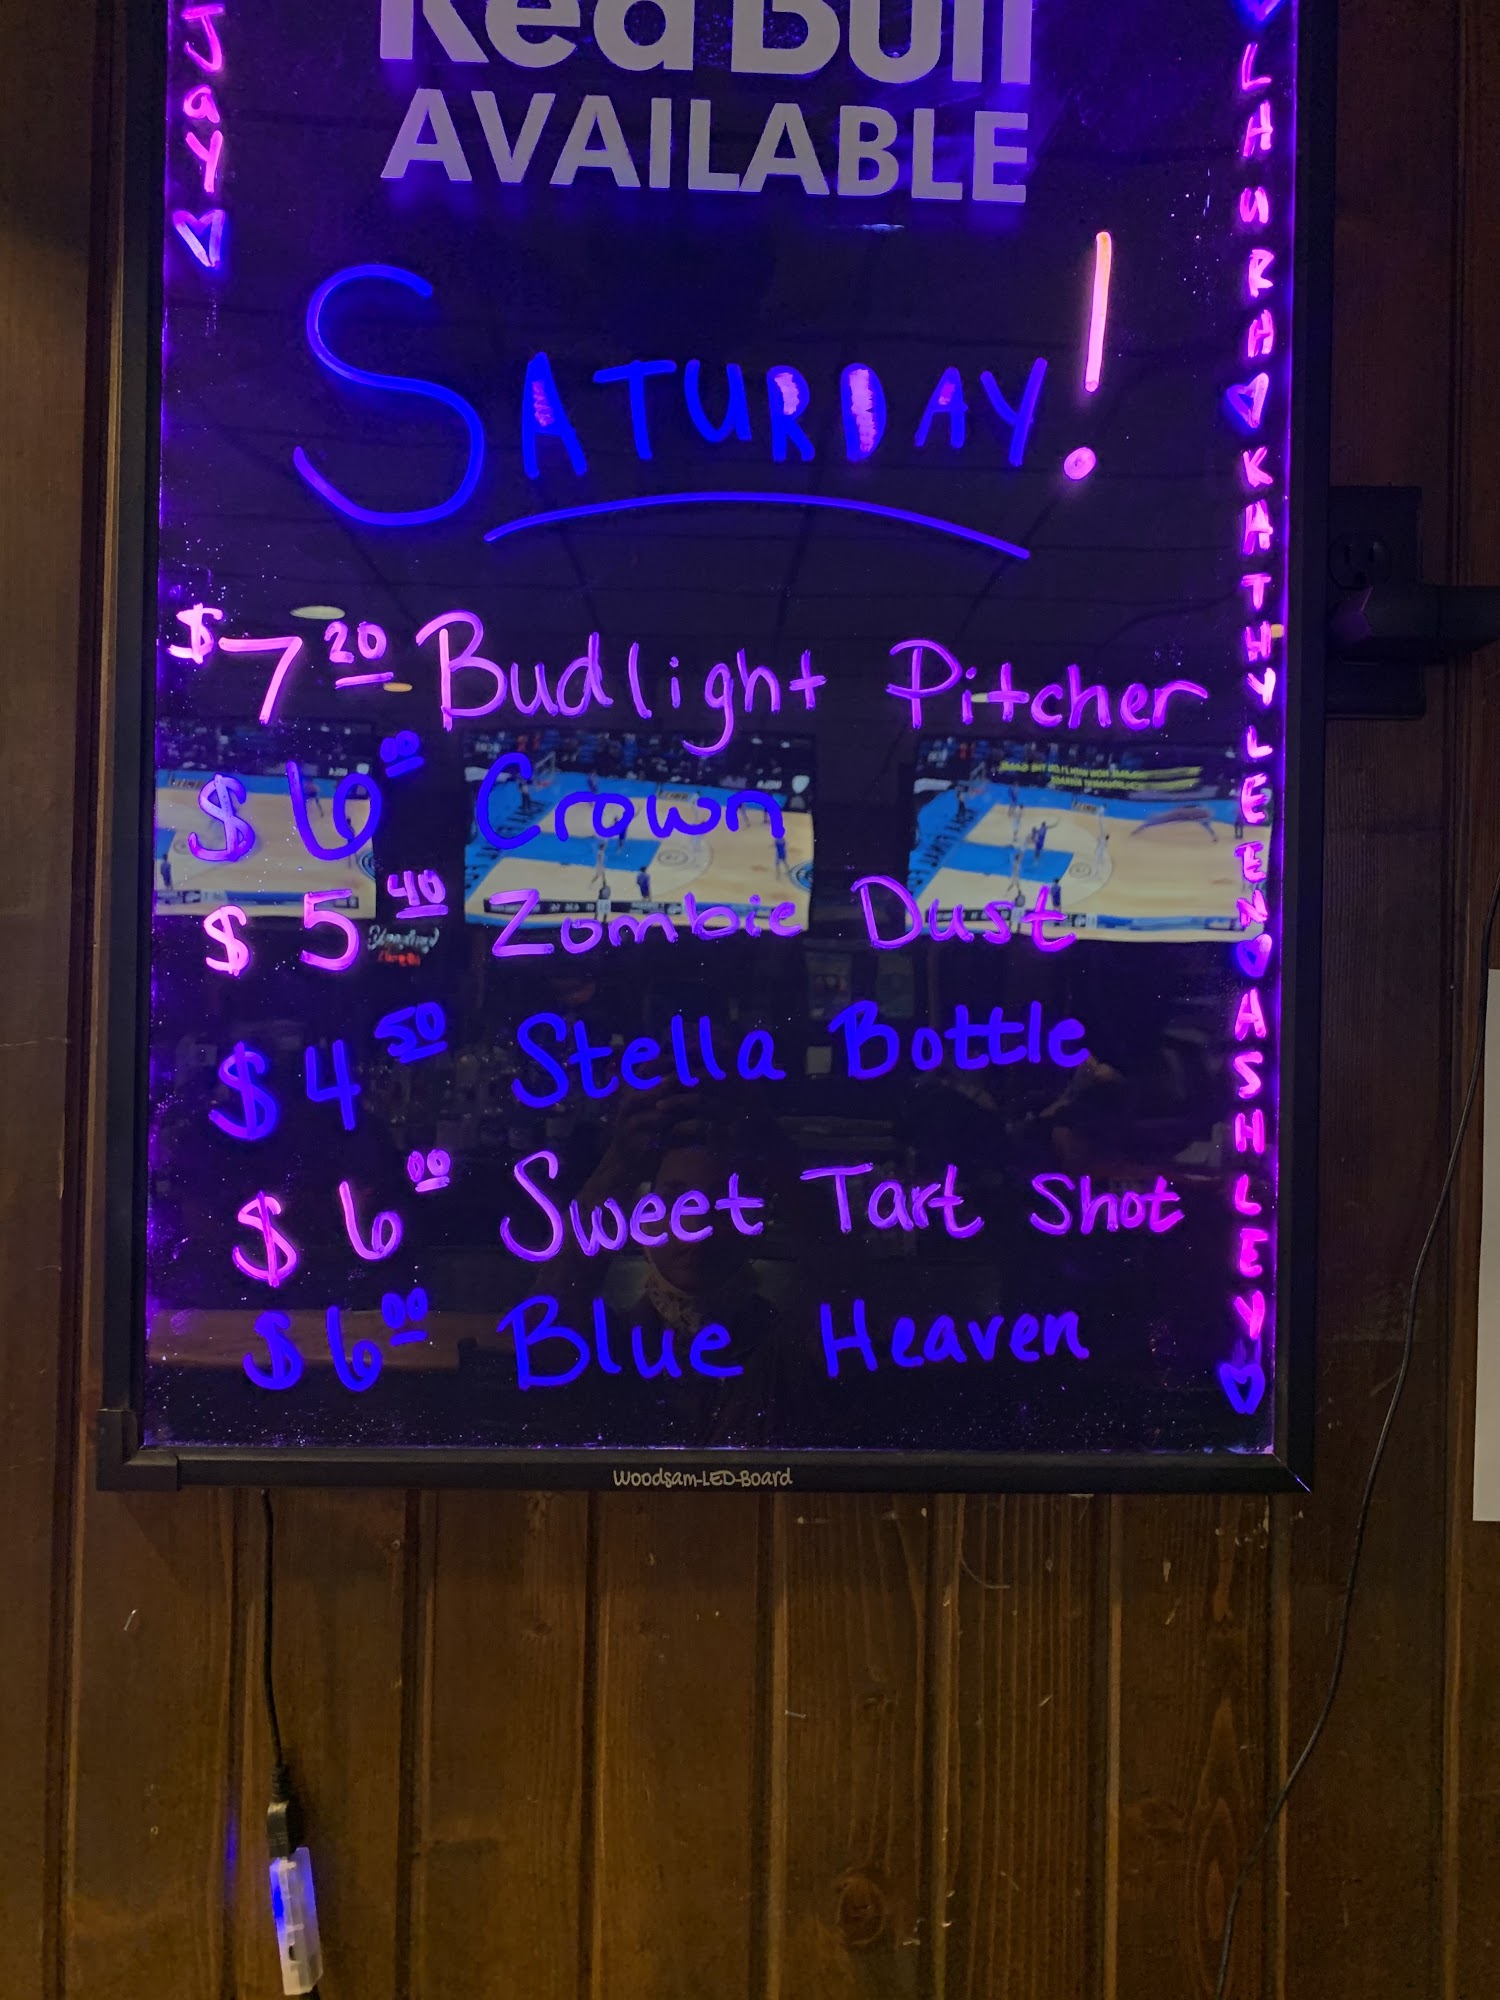 Red Bull
AVAILABLE
Jay
SATURDAY!
$7.20 Budlight Pitcher
$6.00 Crown
$5.40 Zombie Dust
$4.50 Stella Bottle
$6.00 Sweet Tart Shot
$6.00 Blue Heaven
LAURA
KATHYLEEN
ASHLEY
Woodsam-LED-Board